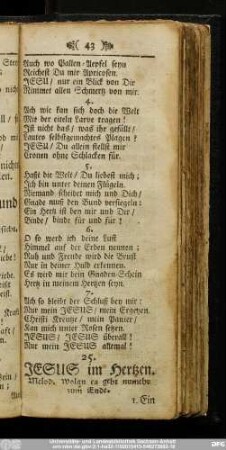 43
Auch wo Gallen-Aepfel seyn
Reichest Du mir Apricosen.
JESU/ nur ein Blick von Dir
Nimmet allen Schmertz von mir.
4.
Ach wie kan sich doch die Welt
Mit der eiteln Larve tragen!
Ist nicht das/ was ihr gefällt/
Lauter selbstgemachtes Plagen?
JESU/ Du allein stellst mir
Cronen ohne Schlacken für.
5.
Haßt die Welt/ Du liebest mich:
Ich bin unter deinen Flügeln.
Niemand scheidet mich und Dich/
Gnade muß den Bund versiegeln:
Ein Hertz ist bey mir und Dir/
Binde/ binde für und für!
6.
O so werd ich deine Lust
Himmel auf der Erden nennen:
Ruh und Freude wird die Brust
Nur in deiner Huld erkennen.
Es wird mir dein Gnaden-Schein
Hertz in meinem Hertzen seyn.
7.
Ach so bleibt der Schluß bey mir:
Nur mein JESUS/ mein Ergetzen.
Christi Creutze/ mein Panier/
Kan mich unter Rosen setzen.
JESUS/ JESUS überall!
Nur mein JESUS allemal!
25.
JESUS im Hertzen.
Melod. Wolan es geht nunmehr
zum Ende.
1. Ein